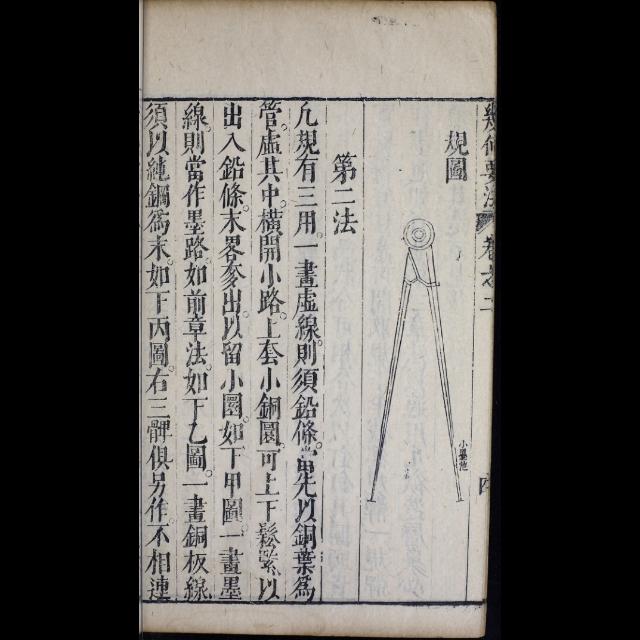 幾何要法 卷之二
四
規圖
小墨池
第二法
凡規有三用。一畫虛線。則須鉛條。當先以銅葉爲
管。虛其中。橫開小路。上套小銅圈。可上下鬆緊。以
出入鉛條。末畧奓出。以留小圈。如下甲圖。一畫墨
線。則當作墨路。如前章法。如下乙圖。一畫銅板線
須以純鋼爲末。如下丙圖。右三髀俱另作。不相連